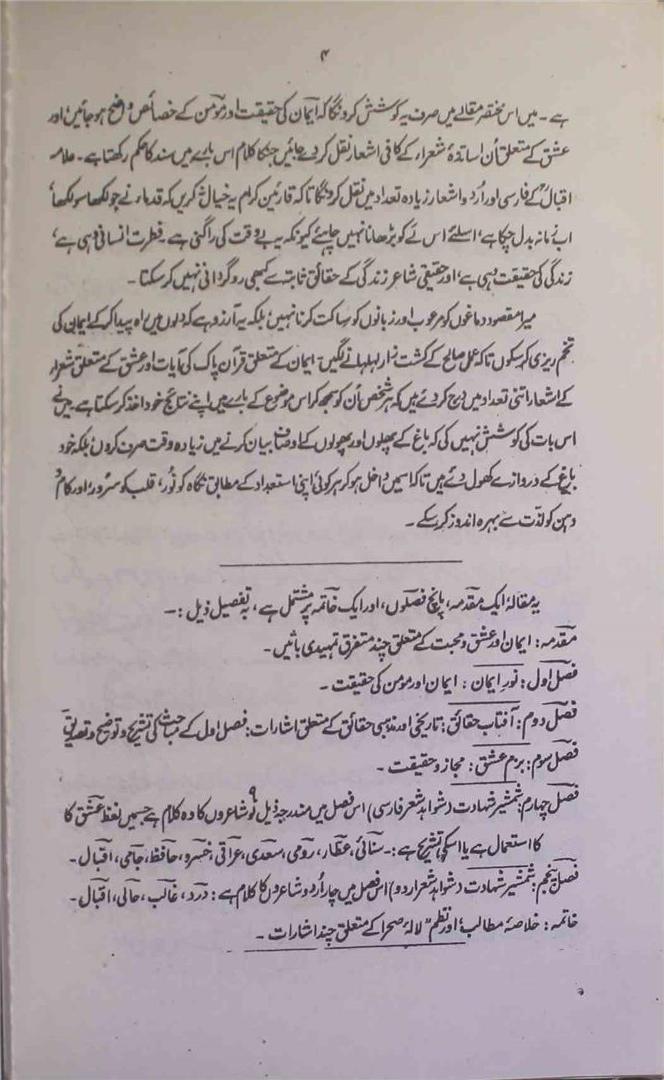 ۴
ہے ۔ میں اس مختصر مقالے میں صرف یہ کوشش کرونگا کہ ایمان کی حقیقت اور مومن کے خصائص واضح ہو جائیں اور
عشق کے متعلق اُن اساتذۂ شعراء کے کافی اشعار نقل کر دیے جائیں جنکا کلام اس بارے میں سند کا حکم رکھتا ہے ۔ علامہ
اقبالؒ کے فارسی اور اُردو اشعار زیادہ تعداد میں نقل کرونگا تاکہ قارئین کرام یہ خیال نہ کریں کہ قدماء نے جو لکھا سو لکھا،
اب زمانہ بدل چکا ہے، اسلئے اس لے کو بڑھانا نہیں چاہیئے کیونکہ یہ بے وقت کی راگنی ہے ۔ فطرت انسانی وہی ہے،
زندگی کی حقیقت وہی ہے، اور حقیقی شاعر زندگی کے حقائق ثابتہ سے کبھی روگردانی نہیں کر سکتا ۔
میرا مقصود دماغوں کو مرعوب اور زبانوں کو ساکت کرنا نہیں، بلکہ یہ آرزو ہے کہ دلوں میں راہ پیدا کر کے ایمان کی
تخم ریزی کر سکوں تاکہ عمل صالح کے کشت زار لہلہانے لگیں ۔ ایمان کے متعلق قرآن پاک کی آیات اور عشق کے متعلق شعراء
کے اشعار اتنی تعداد میں درج کر دیے ہیں کہ ہر شخص اُن کو سمجھ کر اس موضوع کے بارے میں اپنے نتائج خود اخذ کر سکتا ہے ۔ میں نے
اس بات کی کوشش نہیں کی کہ باغ کے پھلوں اور پھولوں کے اوصاف بیان کرنے میں زیادہ وقت صرف کروں، بلکہ خود
باغ کے دروازے کھول دئے ہیں تاکہ اسمیں داخل ہو کر ہر کوئی اپنی استعداد کے مطابق نگاہ کو نور، قلب کو سرور، اور کام و
دہن کو لذت سے بہرہ اندوز کر سکے ۔
یہ مقالہ ایک مقدمہ، پانچ فصلوں، اور ایک خاتمہ پر مشتمل ہے، بہ تفصیل ذیل :۔
مقدمہ : ایمان اور عشق و محبت کے متعلق چند متفرق تمہیدی باتیں ۔
فصل اول : نورِ ایمان : ایمان اور مومن کی حقیقت ۔
فصل دوم : آفتاب حقائق : تاریخی اور مذہبی حقائق کے متعلق اشارات : فصل اول کے مباحث کی تشریح و توضیح و تصدیق
فصل سوم : بزم عشق : مجاز و حقیقت ۔
فصل چہارم : شمشیر شہادت (شواہد شعر فارسی) اس فصل میں مندرجہ ذیل نو ۹ شاعروں کا وہ کلام ہے جسمیں لفظ عشق کا
کا استعمال ہے یا اسکی تشریح ہے :۔ سنائی، عطار، رومی، سعدی، عراقی، خسرو، حافظ، جامی، اقبال ۔
فصل پنجم : شمشیر شہادت (شواہد شعر اردو) اس فصل میں چار اُردو شاعروں کا کلام ہے : درد، غالب، حالی، اقبال ۔
خاتمہ : خلاصۂ مطالب، اور نظم "لالۂ صحرا کے متعلق چند اشارات ۔